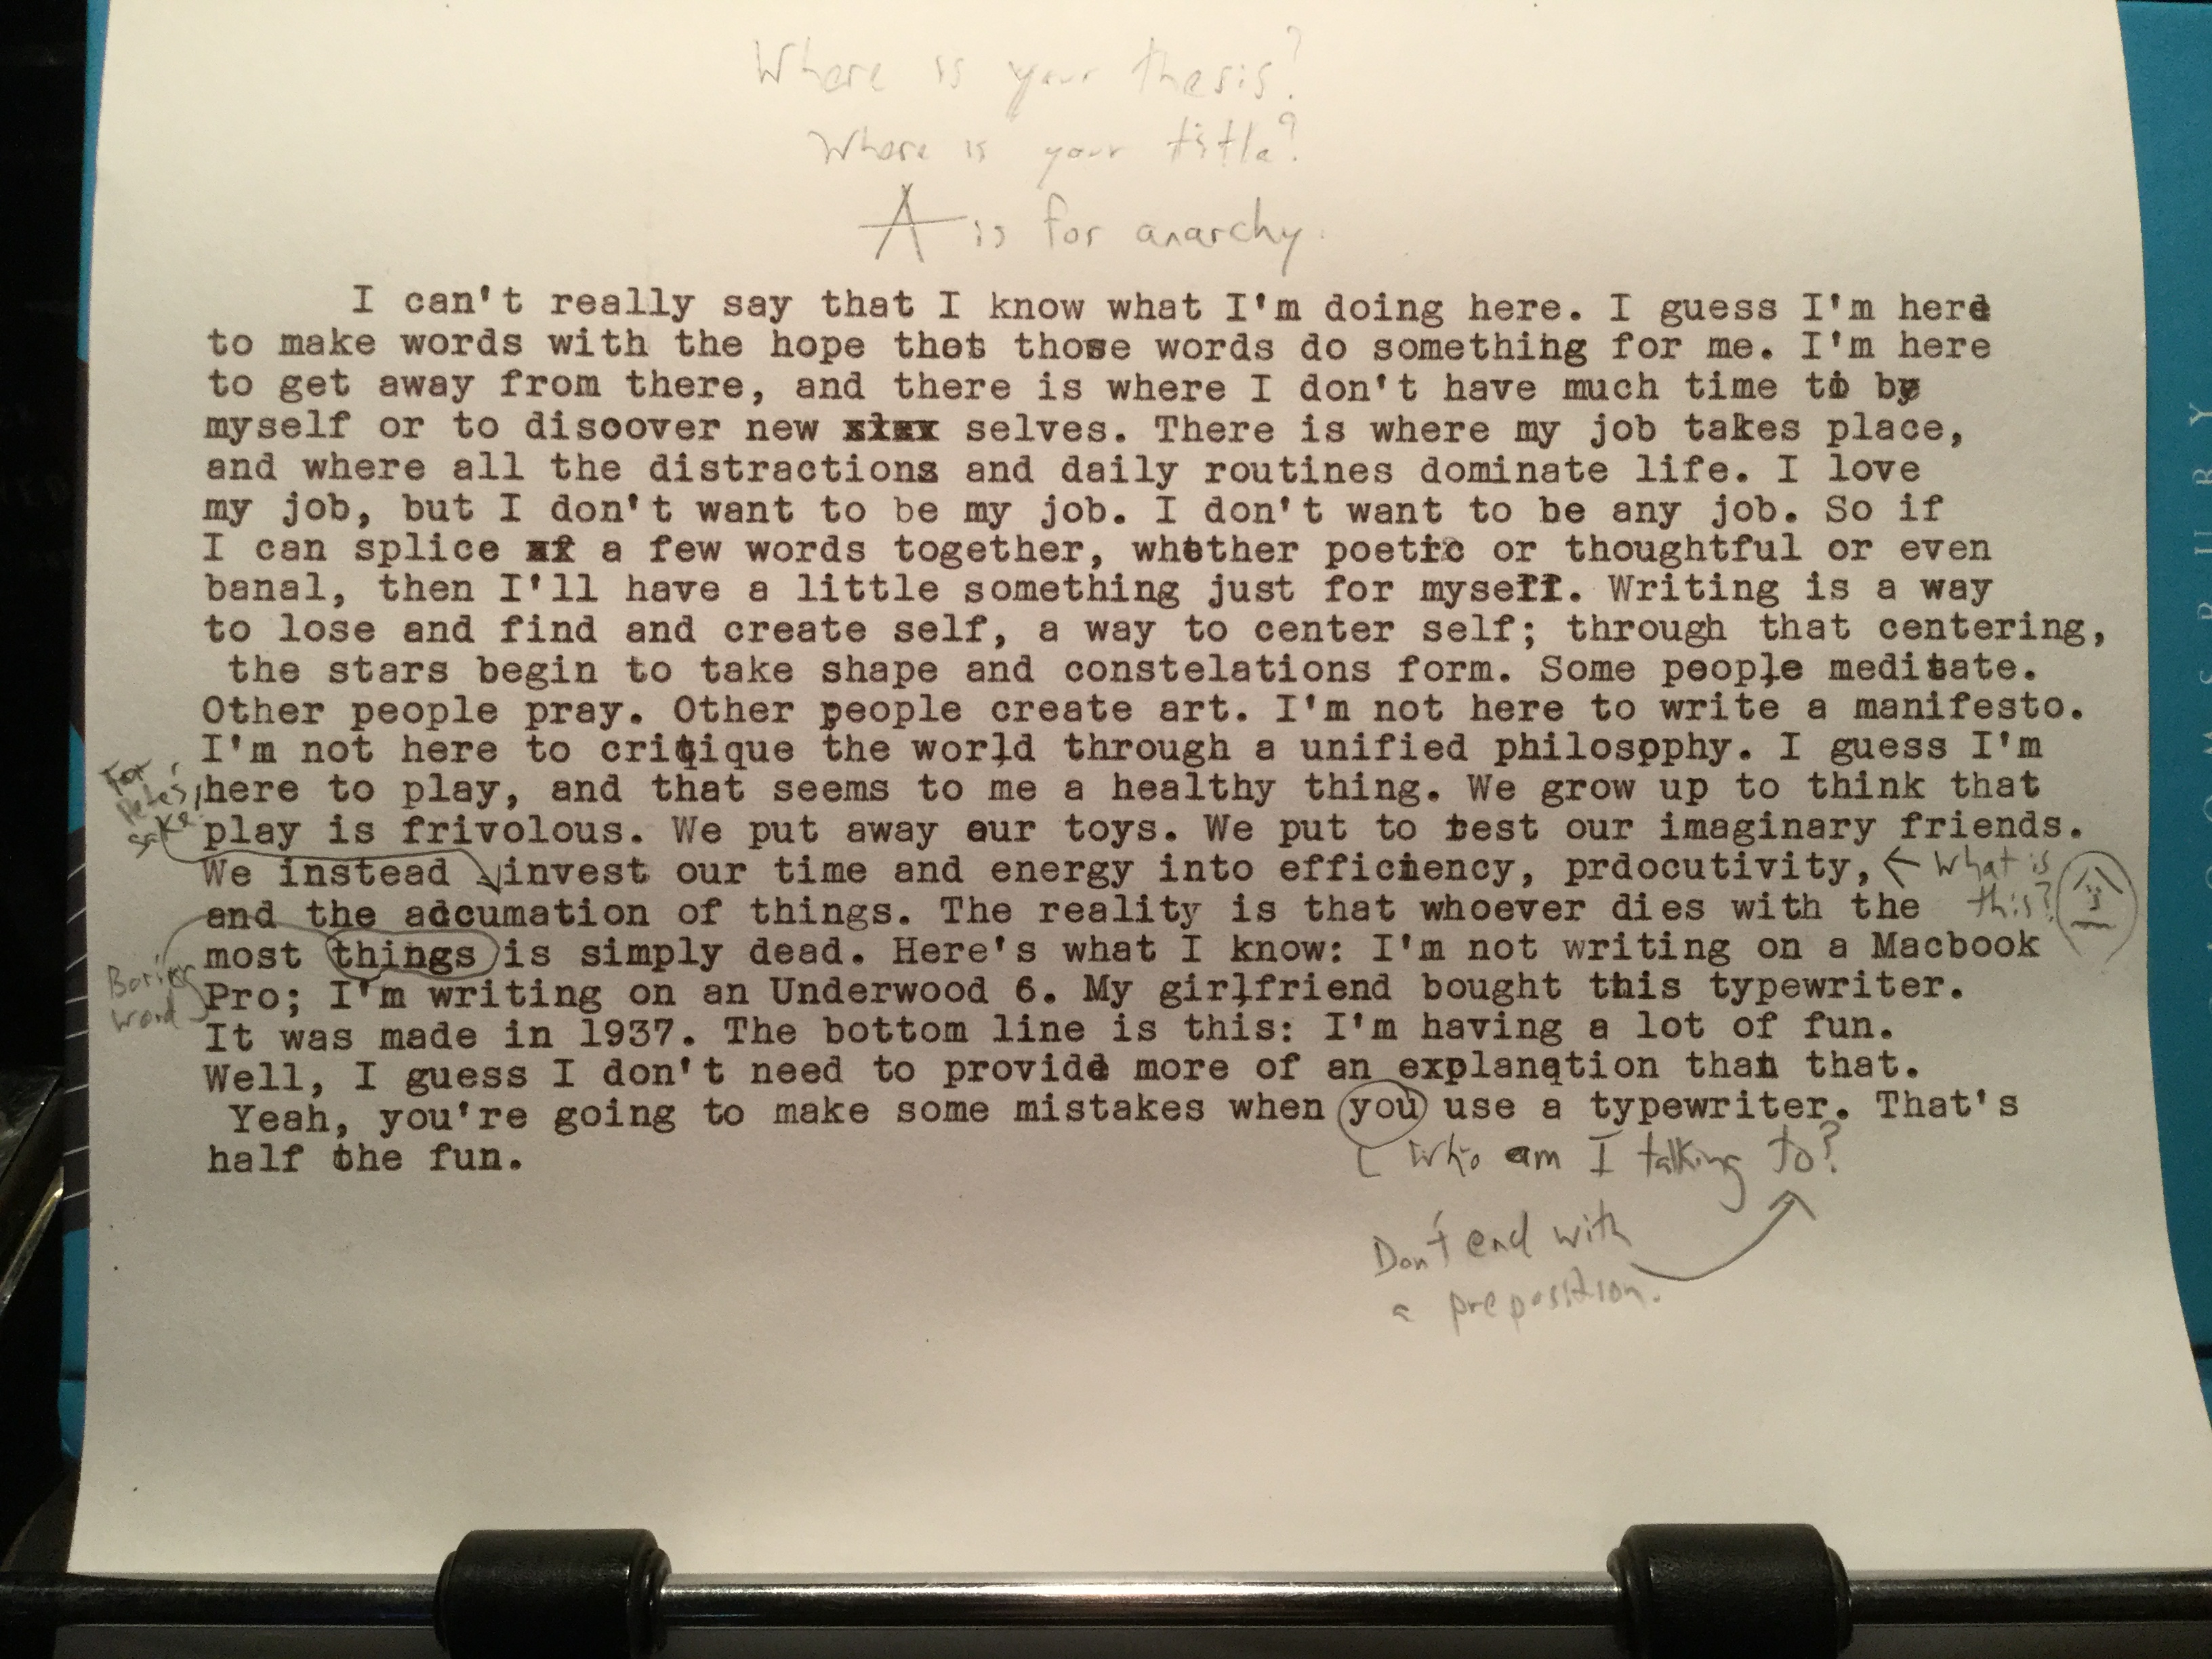 Where is your thesis?
Where is your title?
A is for anarchy.
I can't really say that I know what I'm doing here. I guess I'm here
to make words with the hope that those words do something for me. I'm here
to get away from there, and there is where I don't have much time to by
myself or to disoover new selves. There is where my job takes place,
and where all the distractions and daily routines dominate life. I love
my job, but I don't want to be my job. I don't want to be any job. So if
I can splice a few words together, whether poetic or thoughtful or even
banal, then I'll have a little something just for myself. Writing is a way
to lose and find and create self, a way to center self; through that centering,
the stars begin to take shape and constelations form. Some people meditate.
Other people pray. Other people create art. I'm not here to write a manifesto.
I'm not here to critique the world through a unified philosophy. I guess I'm
here to play, and that seems to me a healthy thing. We grow up to think that
play is frivolous. We put away our toys. We put to rest our imaginary friends.
We instead invest our time and energy into efficiency, prdocutivity,
and the accumation of things. The reality is that whoever dies with the
most things is simply dead. Here's what I know: I'm not writing on a Macbook
Pro; I'm writing on an Underwood 6. My girlfriend bought this typewriter.
It was made in 1937. The bottom line is this: I'm having a lot of fun.
Well, I guess I don't need to provide more of an explanation than that.
Yeah, you're going to make some mistakes when you use a typewriter. That's
half the fun.
For
Pete's
sake!
What is
this?
Boring
word
Who am I talking to?
Don't end with
a preposition.